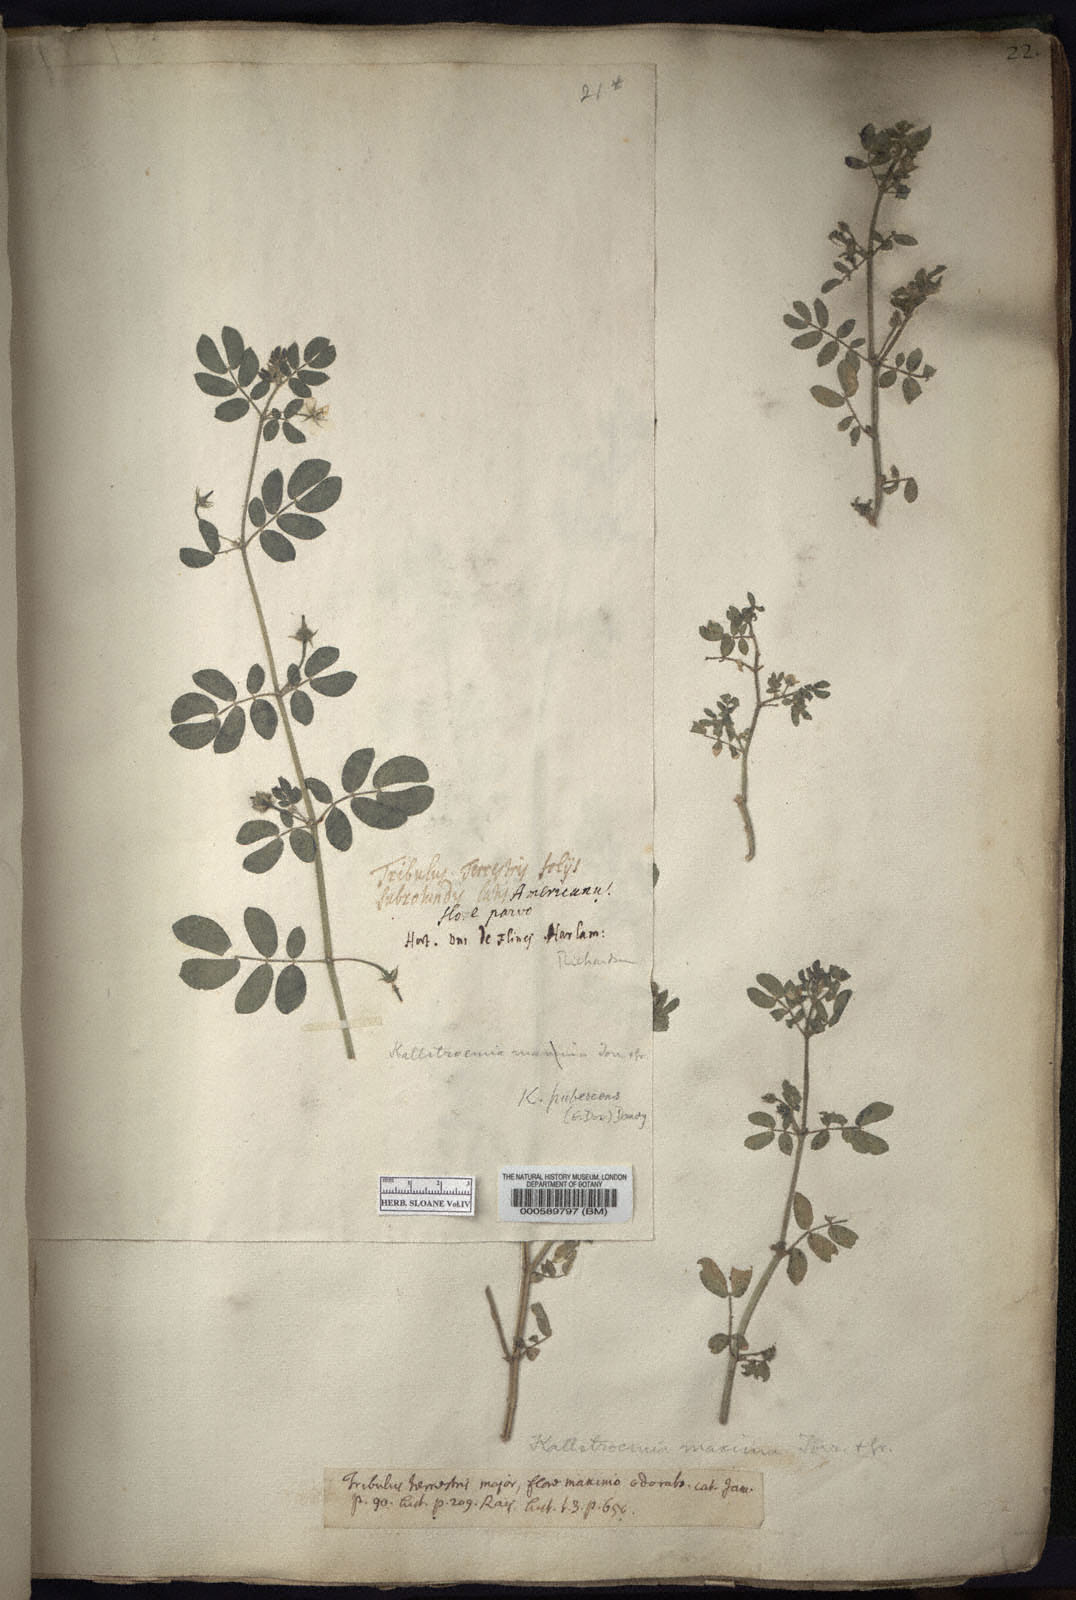 22.
21*
Tribulus Terrestris folijs
subrotundis latis Americanus.
flore parvo
Hort. Dni de Flines Harlam:
Richardson
Kallstroemia maxima Torr. & Gr.
K. pubescens
(G. Don) Dandy
HERB. SLOANE Vol.IV
THE NATURAL HISTORY MUSEUM, LONDON
DEPARTMENT OF BOTANY
000589797 (BM)
Kallstroemia maxima Torr. & Gr.
Tribulus terrestris major, flore maximo odorato. cat. Jam.
p. 90. hist. p. 209. Raij. hist. t. 3. p.